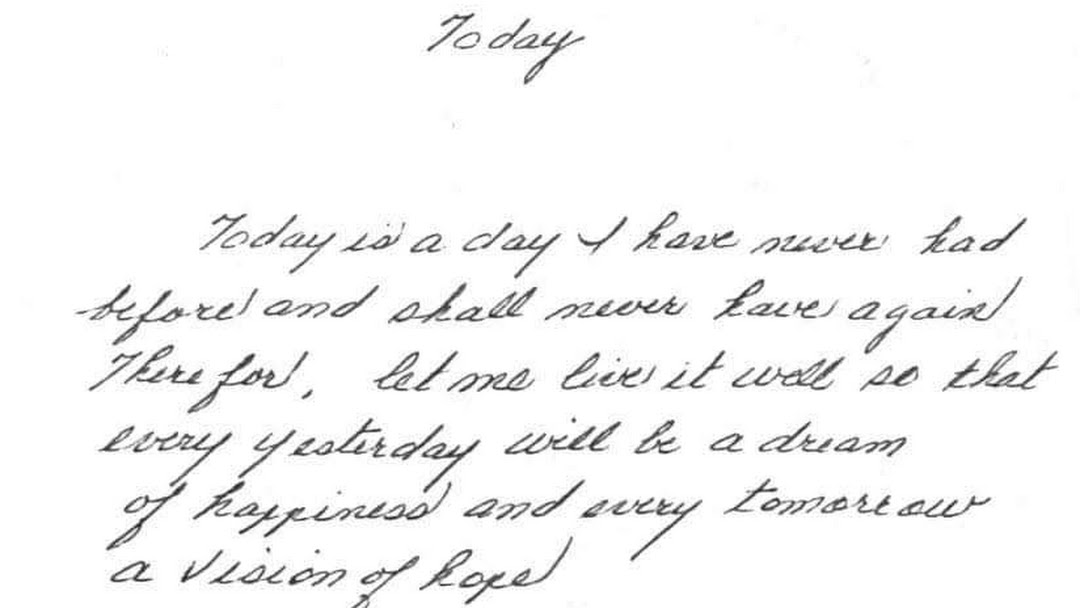 Today
Today is a day I have never had
before and shall never have again
Therefor, let me live it well so that
every yesterday will be a dream
of happiness and every tomorrow
a vision of hope